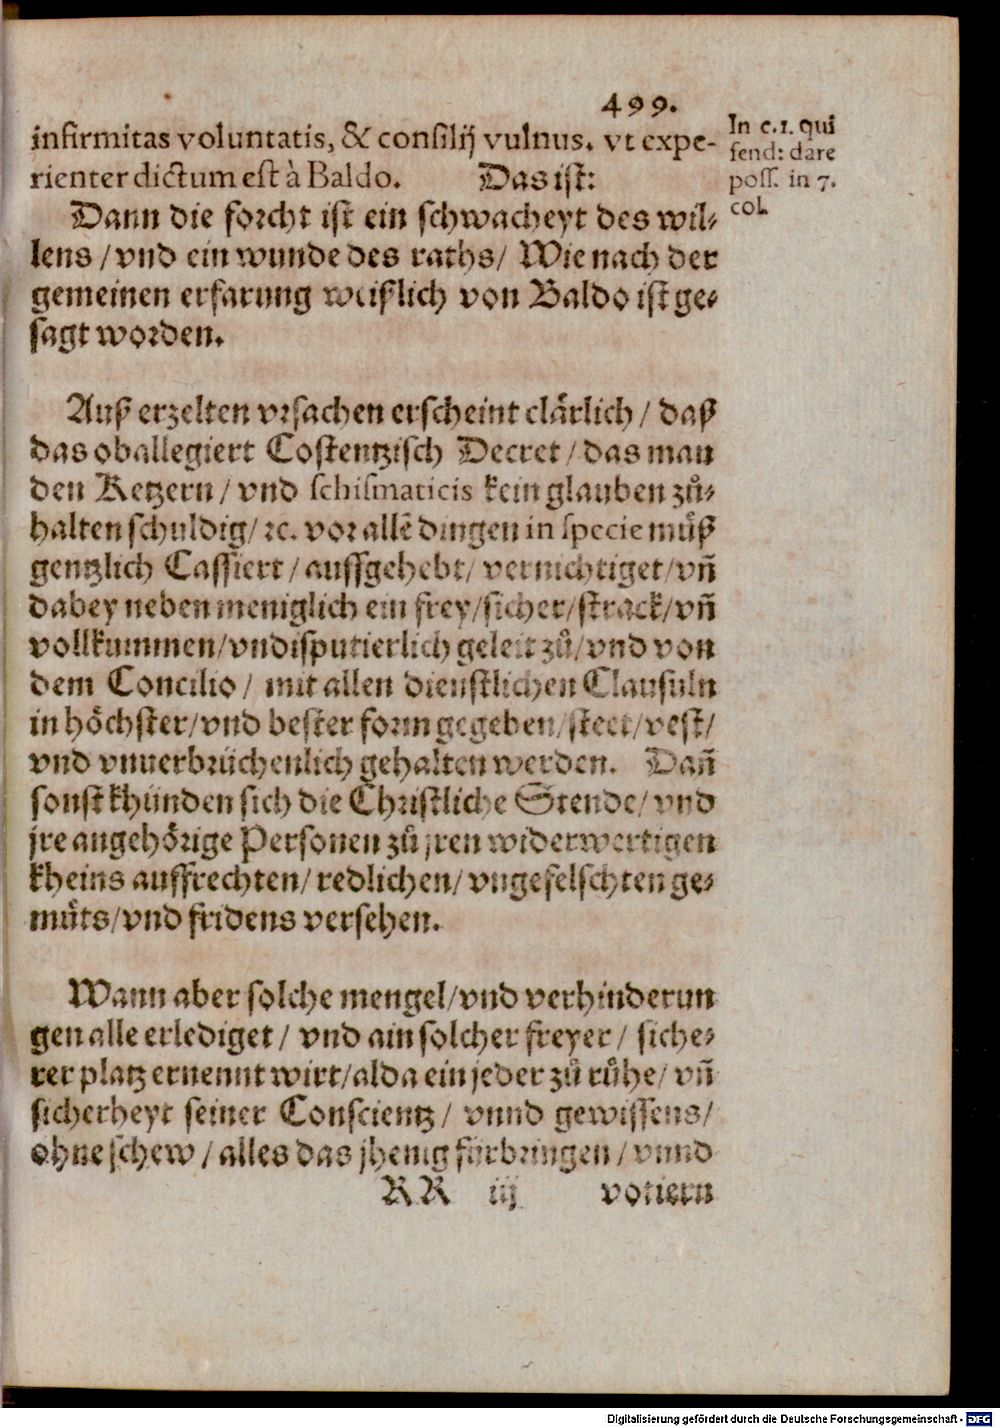 499.
infirmitas voluntatis, & consilij vulnus. vt expe-
rienter dictum est à Baldo. Das ist:
In c. 1. qui
fend: dare
poss. in 7.
col.
Dann die forcht ist ein schwacheyt des wil-
lens / vnd ein wunde des raths / Wie nach der
gemeinen erfarung weißlich von Baldo ist ge-
sagt worden.
Auß erzelten vrsachen erscheint clärlich / daß
das oballegiert Costentzisch Decret / das man
den Ketzern / vnd schismaticis kein glauben zů-
halten schuldig / ꝛc. vor allē dingen in specie můß
gentzlich Cassiert / auffgehebt / vernichtiget / vñ
dabey neben meniglich ein frey / sicher / strack / vñ
vollkummen / vndisputierlich geleit zů / vnd von
dem Concilio / mit allen dienstlichen Clausuln
in höchster / vnd bester form gegeben / steet / vest /
vnd vnuerbrüchenlich gehalten werden. Dañ
sonst khünden sich die Christliche Stende / vnd
jre angehörige Personen zů jren widerwertigen
kheins auffrechten / redlichen / vngefelschten ge-
můts / vnd fridens versehen.
Wann aber solche mengel / vnd verhinderun
gen alle erlediget / vnd ain solcher freyer / siche-
rer platz ernennt wirt / alda ein jeder zů růhe / vñ
sicherheyt seiner Conscientz / vnnd gewissens /
ohne schew / alles das jhenig fürbringen / vnnd
RR iij votiern
Digitalisierung gefördert durch die Deutsche Forschungsgemeinschaft - DFG